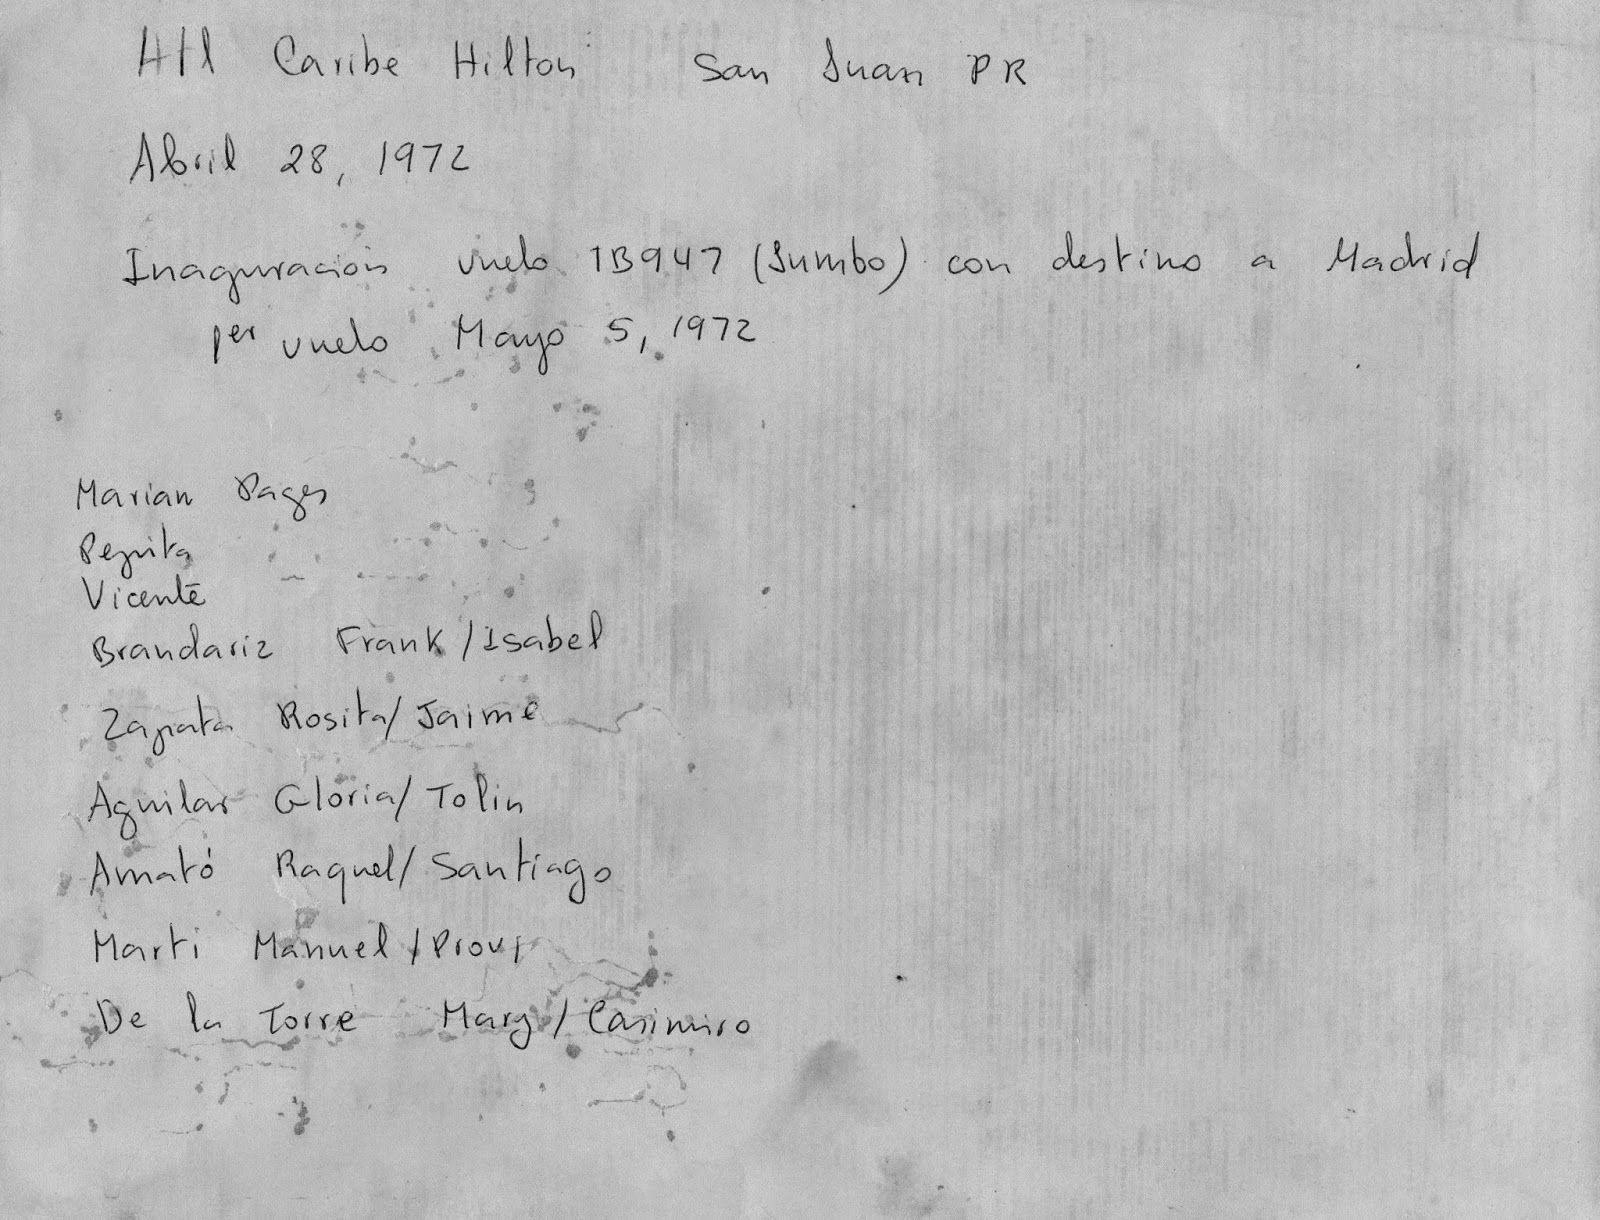 Htl Caribe Hilton San Juan PR
Abril 28, 1972
Inaguracion vuelo IB947 (Jumbo) con destino a Madrid
per vuelo Mayo 5, 1972
Marian Pages
Pepita
Vicente
Brandariz Frank/Isabel
Zapata Rosita/Jaime
Aguilar Gloria/Tolin
Amató Raquel/Santiago
Marti Manuel/Provi
De la Torre Mary/Casimiro